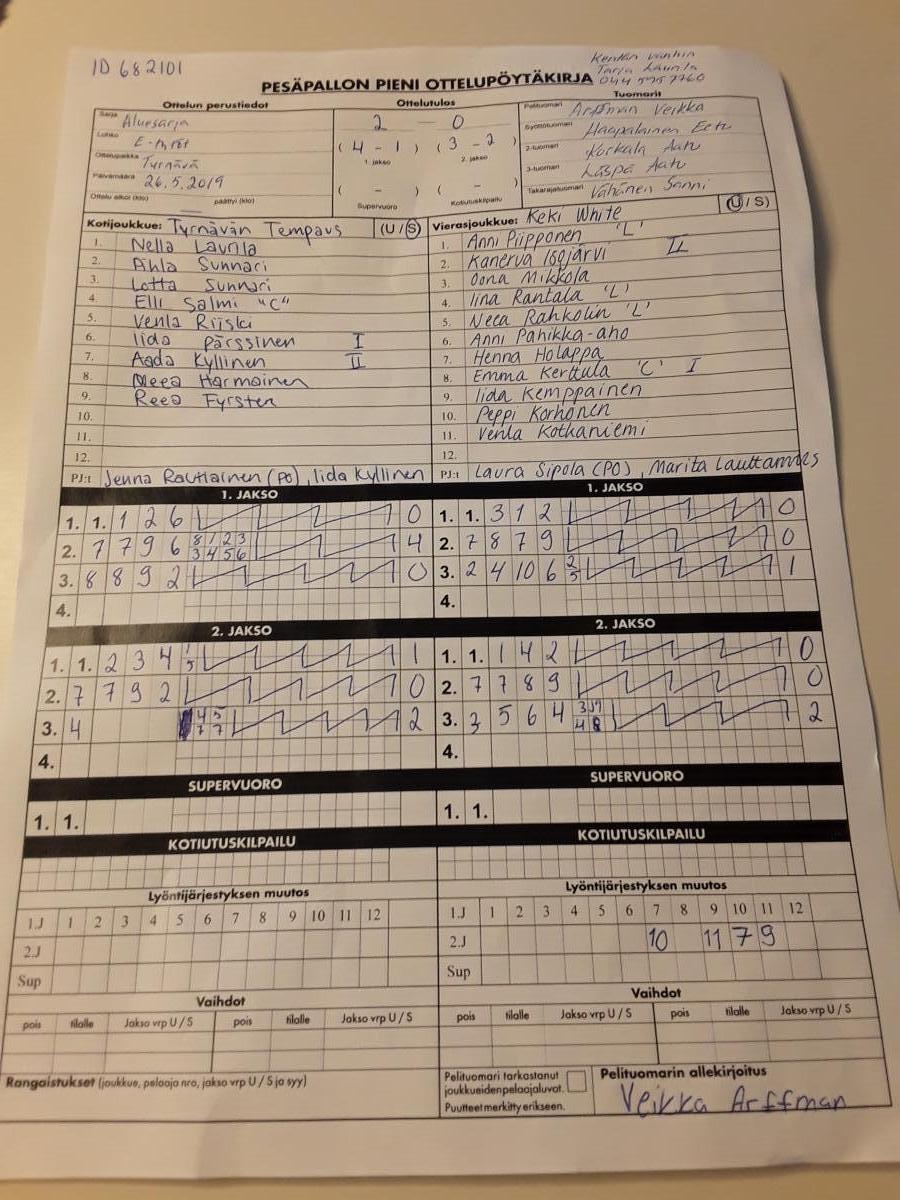 ID 682101
Kentän vanhin
Tarja Laurila
PESÄPALLON PIENI OTTELUPÖYTÄKIRJA
Ottelun perustiedot
Sarja Aluesarja
Lohko E-tytöt
Ottelupaikka Tyrnävä
Päivämäärä 26.5.2019
Ottelu alkoi (klo) päättyi (klo)
Ottelutulos
2 - 0
( 4 - 1 ) ( 3 - 2 )
1. jakso 2. jakso
( - ) ( - )
Supervuoro Kotiutuskilpailu
Tuomarit
Pelituomari Arffman Veikka
Syöttötuomari Haapalainen Eetu
2-tuomari Korkala Aatu
3-tuomari Käspä Aatu
Takarajatuomari Vähänen Sanni
Kotijoukkue: Tyrnävän Tempaus (U / S)
1. Nella Laurila
2. Ahla Sunnari
3. Lotta Sunnari
4. Elli Salmi "C"
5. Venla Riiski
6. Iida Pärssinen I
7. Aada Kyllinen II
8. Neea Harmainen
9. Reea Fyrsten
10.
11.
12.
PJ:t Jenna Rauttainen (PO), Iida Kyllinen
Vierasjoukkue: Keki White (U / S)
1. Anni Piipponen 'L'
2. Kanerva Isojärvi II
3. Oona Mikkola
4. Iina Rantala 'L'
5. Neea Rahkolin 'L'
6. Anni Pahikka-aho
7. Henna Holappa
8. Emma Kerttula 'C' I
9. Iida Kemppainen
10. Peppi Korhonen
11. Venla Kotkaniemi
12.
PJ:t Laura Sipola (PO), Marita Lauttamus
1. JAKSO
1. 1. 1 2 6 0
2. 7 7 9 6 8 1 2 3 4
3 4 5 6
3. 8 8 9 2 0
4.
1. JAKSO
1. 1. 3 1 2 0
2. 7 8 7 9 0
3. 2 4 10 6 2 1
5
4.
2. JAKSO
1. 1. 2 3 4 1 1
5
2. 7 7 9 2 0
3. 4 4 5 2
7 7
4.
2. JAKSO
1. 1. 1 4 2 0
2. 7 7 8 9 0
3. 3 5 6 4 2
4 8
4.
SUPERVUORO
1. 1.
SUPERVUORO
1. 1.
KOTIUTUSKILPAILU
KOTIUTUSKILPAILU
Lyöntijärjestyksen muutos
1.J 1 2 3 4 5 6 7 8 9 10 11 12
2.J
Sup
Lyöntijärjestyksen muutos
1.J 1 2 3 4 5 6 7 8 9 10 11 12
2.J 10 11 7 9
Sup
Vaihdot
pois tilalle Jakso vrp U / S pois tilalle Jakso vrp U / S
Vaihdot
pois tilalle Jakso vrp U / S pois tilalle Jakso vrp U / S
Rangaistukset (joukkue, pelaaja nro, jakso vrp U / S ja syy)
Pelituomari tarkastanut
joukkueiden pelaajaluvat.
Puutteet merkitty erikseen.
Pelituomarin allekirjoitus
Veikka Arffman